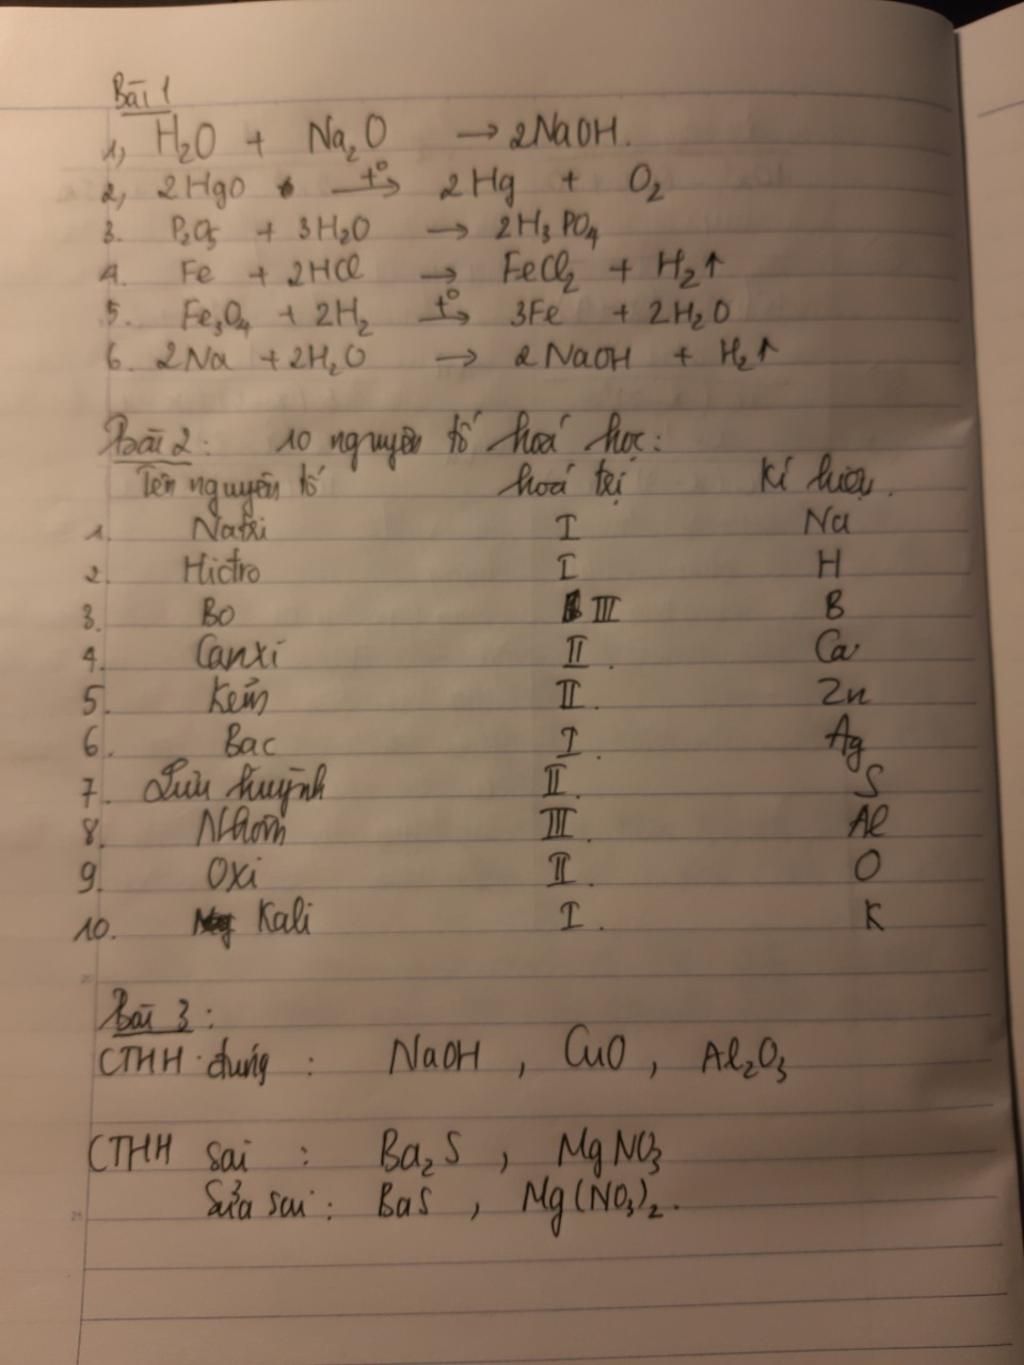 Bài 1
1, H₂O + Na₂O → 2NaOH.
2, 2HgO —t°→ 2Hg + O₂
3. P₂O₅ + 3H₂O → 2H₃PO₄
4. Fe + 2HCl → FeCl₂ + H₂↑
5. Fe₃O₄ + 2H₂ —t°→ 3Fe + 2H₂O
6. 2Na + 2H₂O → 2NaOH + H₂↑
Bài 2: 10 nguyên tố hoá học:
Tên nguyên tố hoá trị Kí hiệu.
1. Natri I Na
2. Hiđro I H
3. Bo III B
4. Canxi II. Ca
5. Kẽm II. Zn
6. Bac I. Ag
7. Lưu huỳnh II. S
8. Nhôm III. Al
9. Oxi II. O
10. Kali I. K
Bài 3:
CTHH đúng : NaOH , CuO , Al₂O₃
CTHH sai : Ba₂S , MgNO₃
Sửa sai : BaS , Mg(NO₃)₂.
25